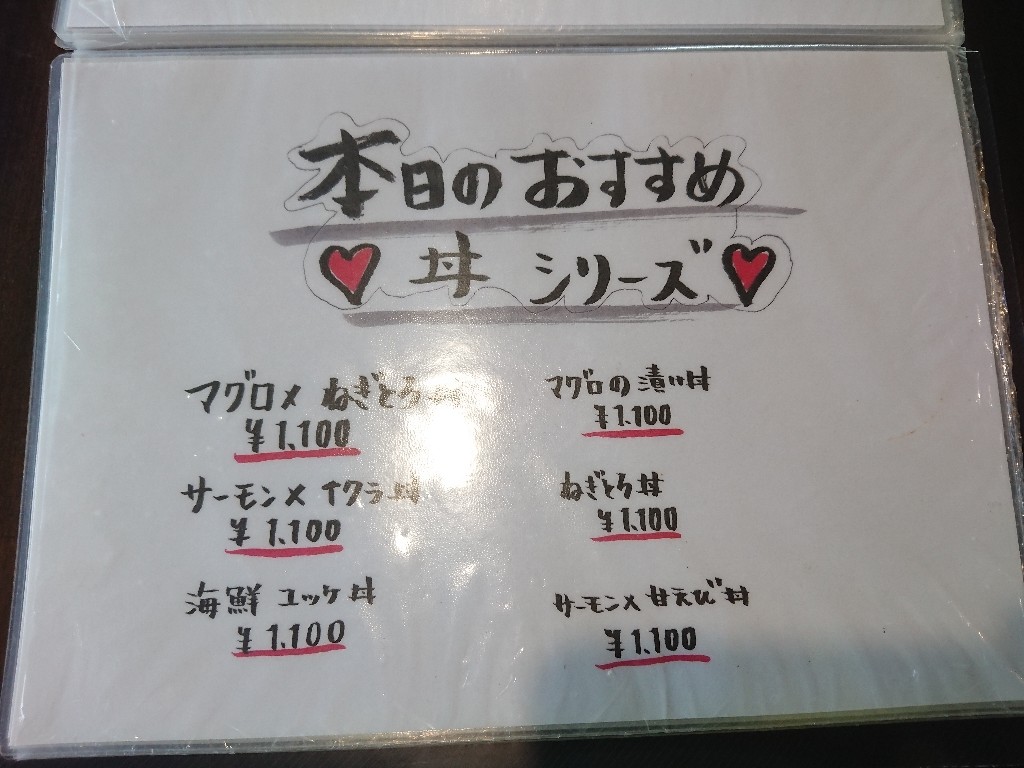 本日のおすすめ
丼 シリーズ
マグロ× ねぎとろ丼
¥1,100
サーモン× イクラ丼
¥1,100
海鮮 ユッケ丼
¥1,100
マグロの漬け丼
¥1,100
ねぎとろ丼
¥1,100
サーモン× 甘えび丼
¥1,100